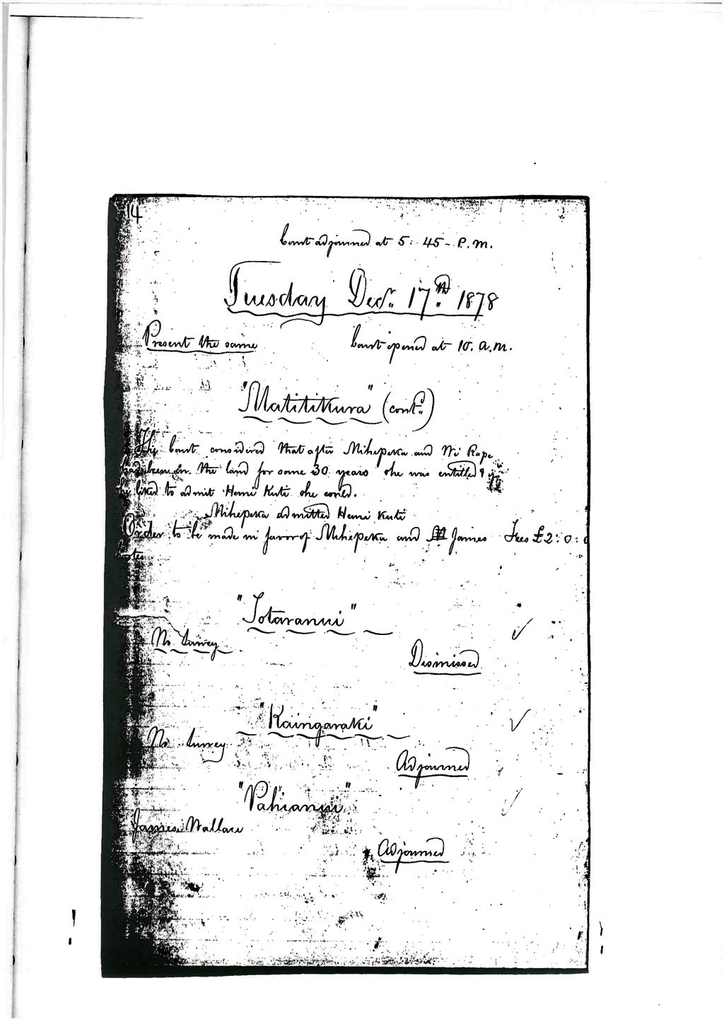 14
Court adjourned at 5:45 - P.m.
Tuesday Decr. 17th. 1878
Present the same Court opened at 10. a.m.
"Matitikura" (contd.)
The Court considered that after Mihepeka and Wi Rape
had been on the land for some 30 years she was entitled & if
she liked to admit Hemi Kuti she could.
Mihepeka admitted Hemi Kuti
Order to be made in favor of Mihepeka and James Fees £2:0:0
"Totaranui"
No Survey
Dismissed
"Kaingaraki"
No Survey
Adjourned
"Pahianui"
James Wallace
Adjourned